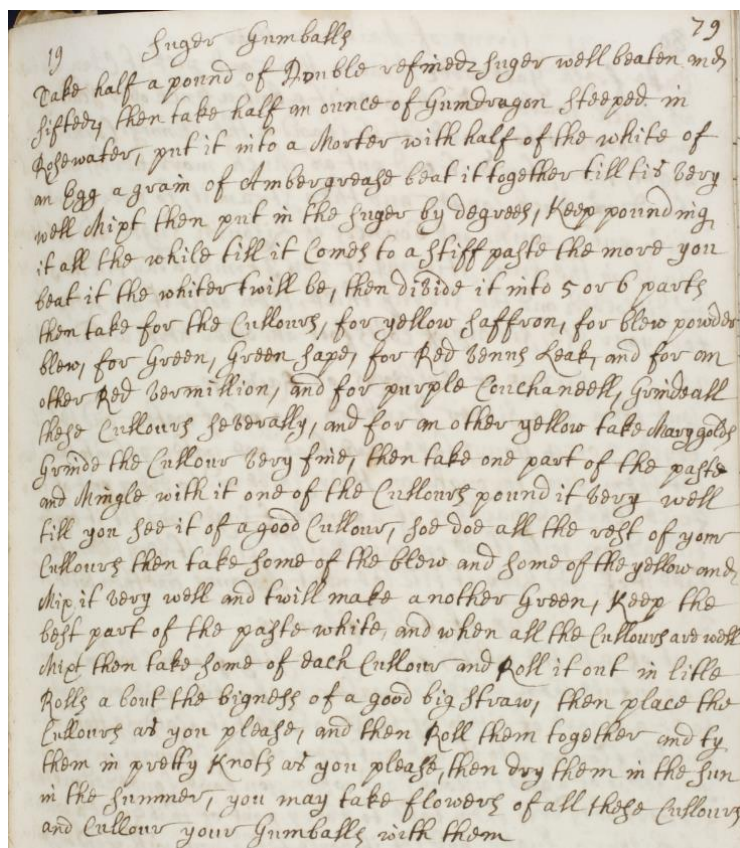 79
19 Suger Gumballs
Take half a pound of Double refined Suger well beaten and
sifted, then take half an ounce of Gumdragon steeped in
Rosewater, put it into a Morter with half of the white of
an Egg a grain of Ambergrease beat it together till tis very
well Mixt then put in the suger by degrees, Keep pounding
it all the while till it Comes to a stiff paste the more you
beat it the whiter twill be, then divide it into 5 or 6 parts
then take for the Cullours, for yellow saffron, for blew powder
blew, for Green, Green sape, for Red venus Leak, and for an
other Red vermillion, and for purple Couchaneell, Grinde all
these Cullours severally, and for an other yellow take Marygolds
Grinde the Cullour very fine, then take one part of the paste
and Mingle with it one of the Cullours pound it very well
till you see it of a good Cullour, soe doe all the rest of your
Cullours then take some of the blew and some of the yellow and
Mix it very well and twill make another Green, Keep the
best part of the paste white, and when all the Cullours are well
Mixt then take some of each Cullour and Roll it out in litle
Rolls a bout the bigness of a good big straw, then place the
Cullours as you please, and then Roll them together and ty
them in pretty Knots as you please, then dry them in the sun
in the summer, you may take flowers of all these Cullours
and Cullour your Gumballs with them